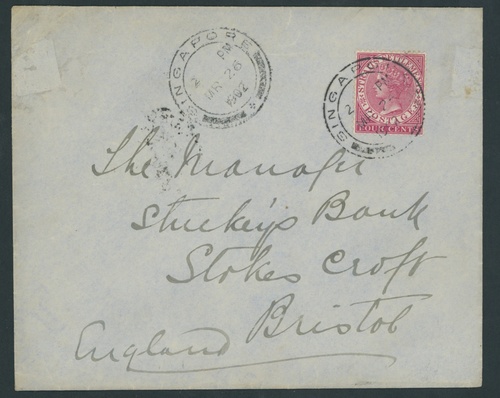 SINGAPORE
2 PM
MR 26
1902
SINGAPORE
2 PM
POSTAGE
FOUR CENTS
The Manager
Stuckey's Bank
Stokes Croft
Bristol
England